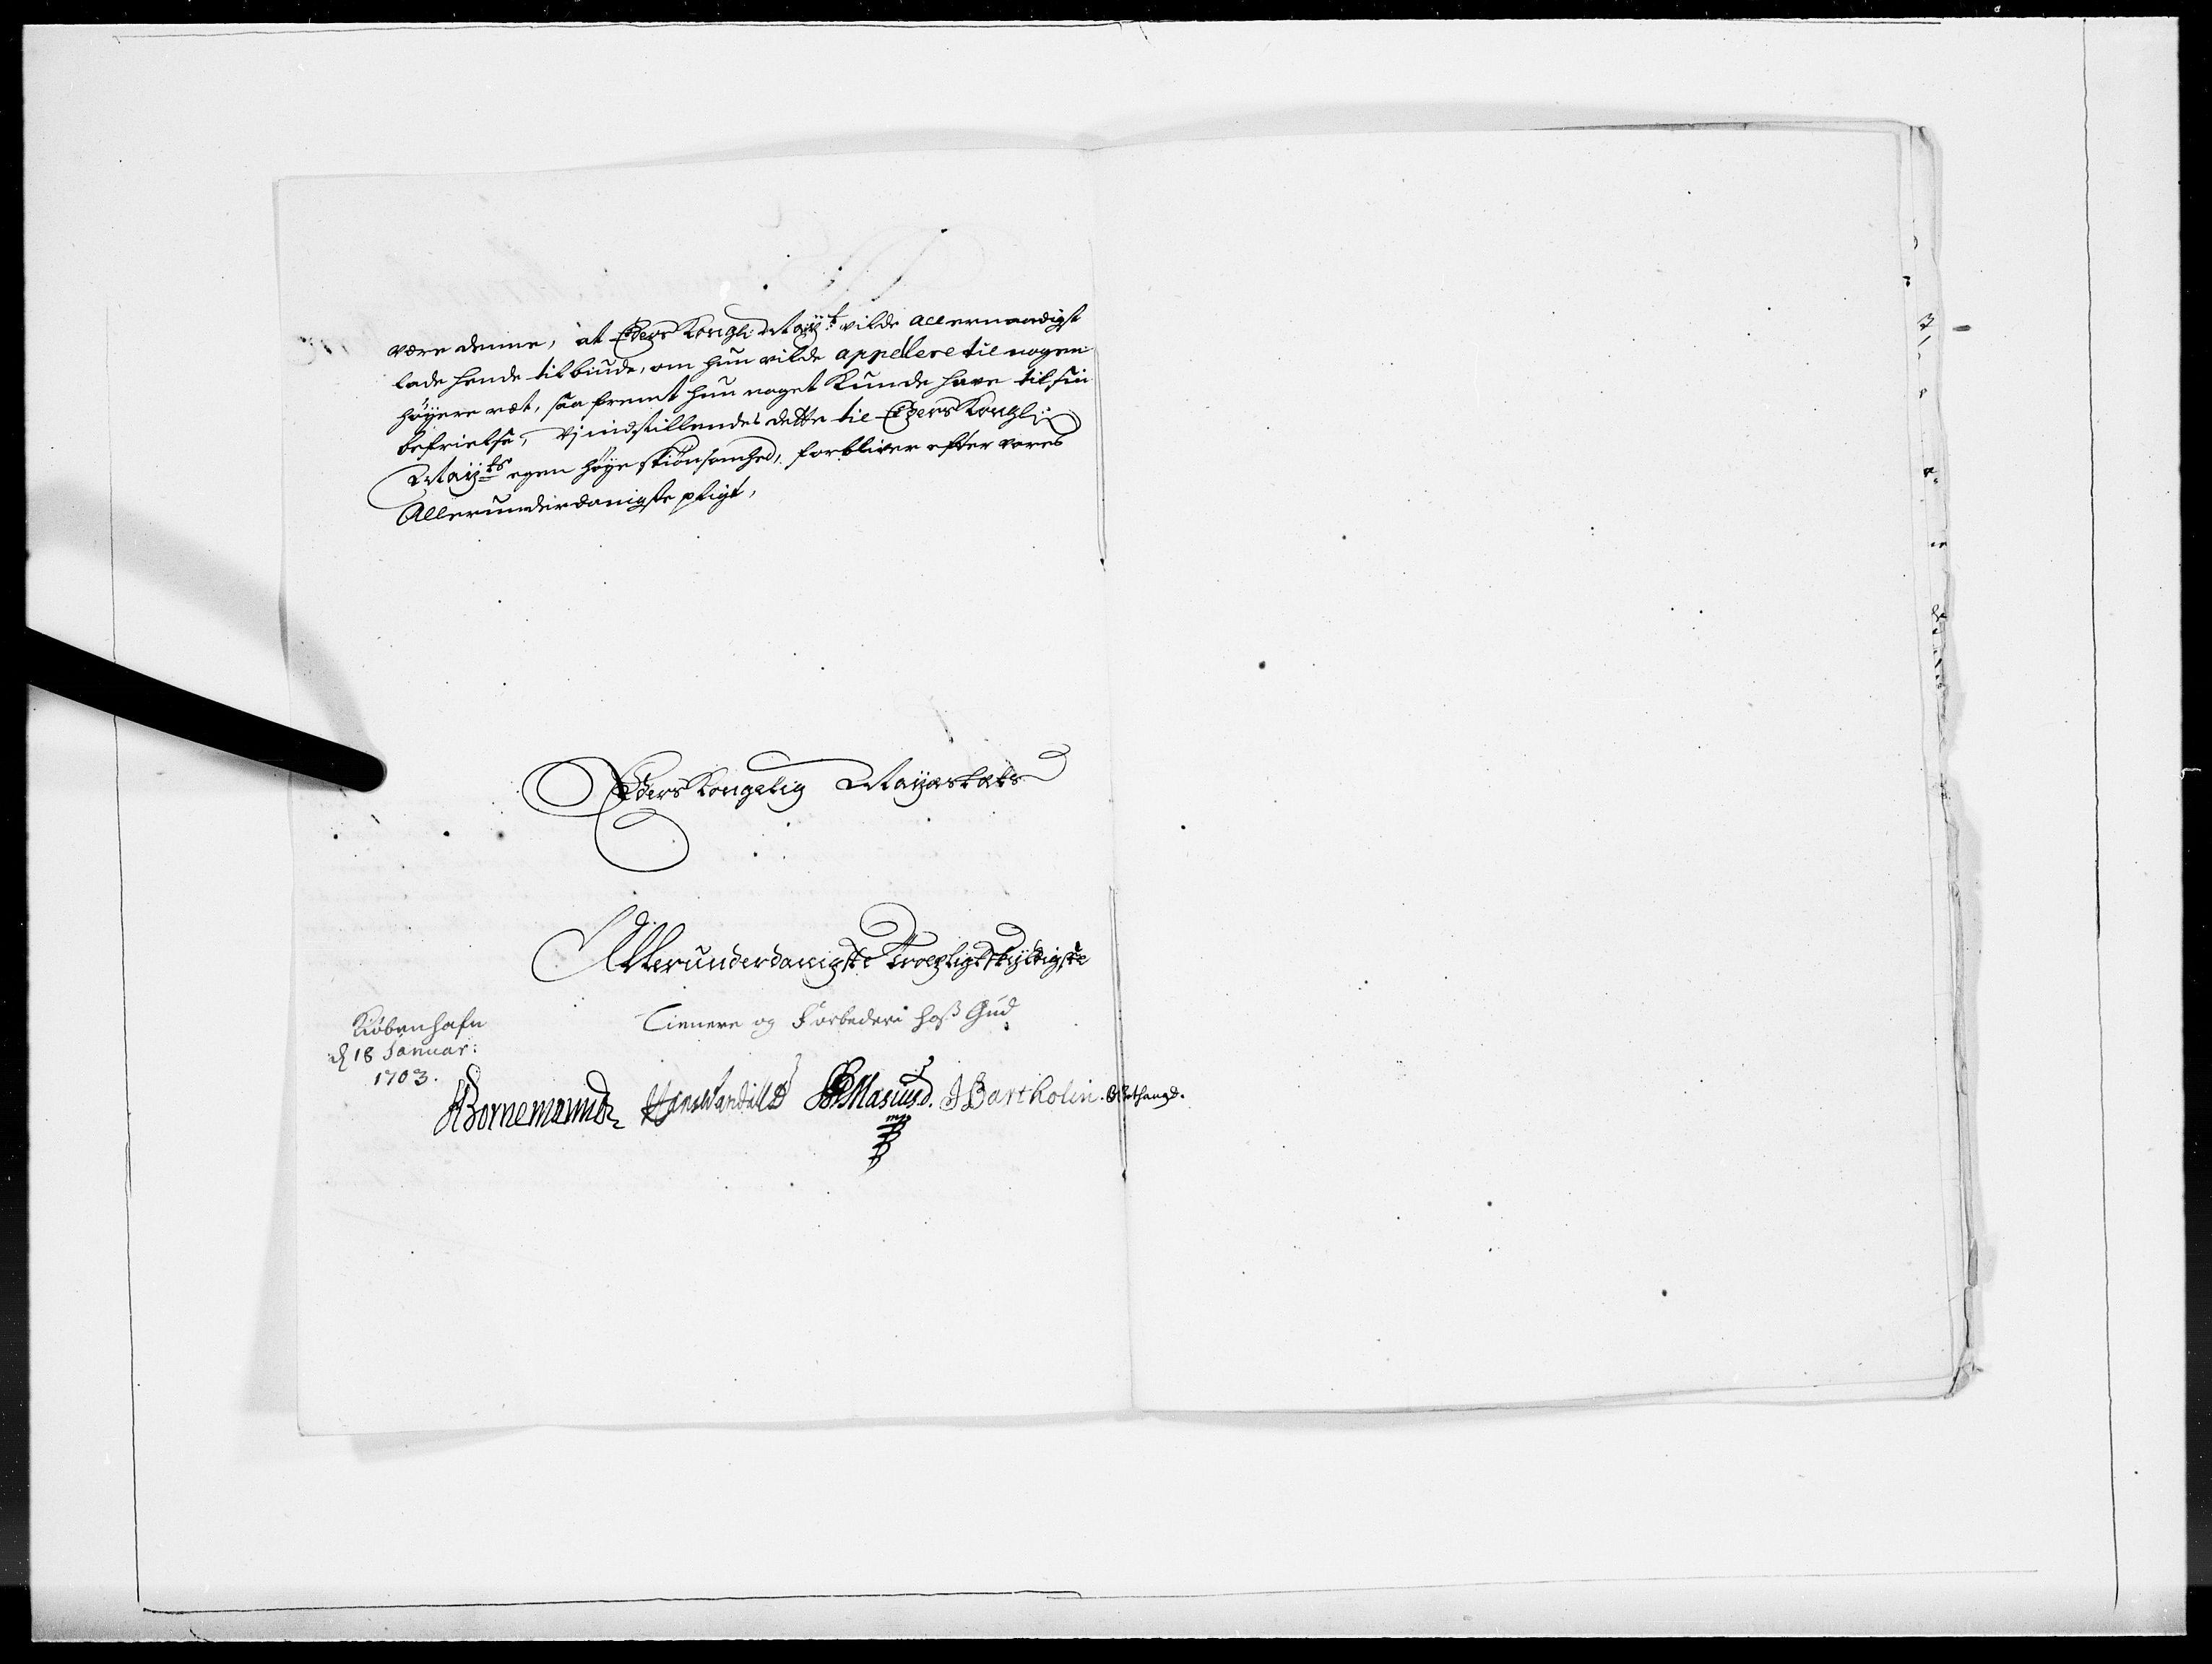 være denne, at Eders Kongl: Mayt: vilde allernaadigst
lade hende tilbiude, om hun vilde appellere til nogen
høyere ræt, saa fremt hun noget kunde have til sin
befrielse, Vj indstillendes dette til Eders Kongl:
Mayts egen høye skiønsomhed, forbliver efter vores
Allerunderdanigste pligt,
Eders Kongelig Mayestæts
Allerunderdanigste Troepligtskyldigste
Tienere og Forbedere hoß Gud
Kiøbenhafn
d 18 Januar:
1703.
HBornemann D HansWandall D HMasius D. JBartholin.